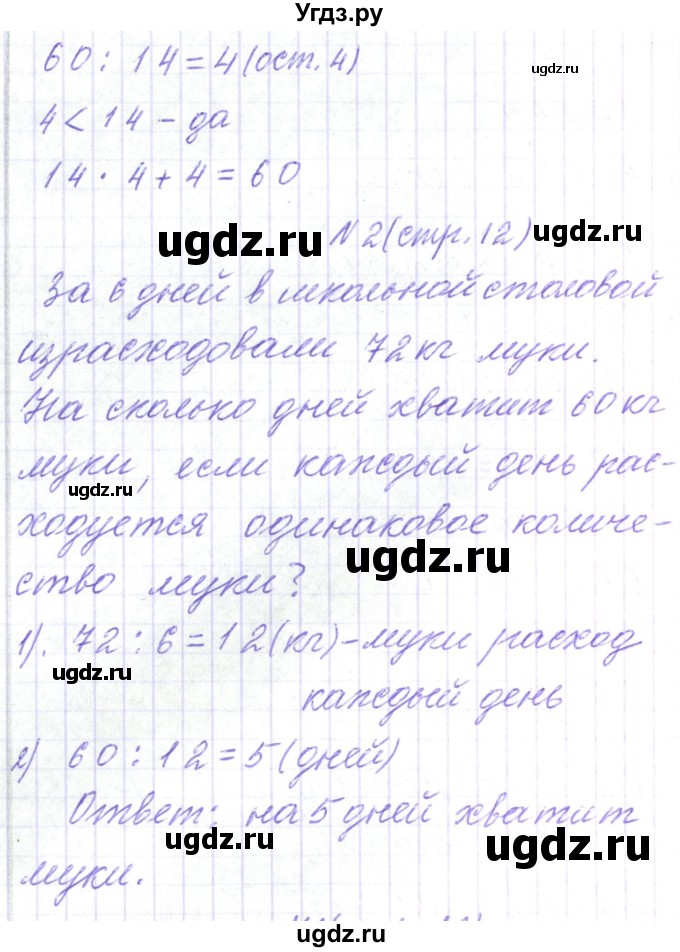 Угдз.ру
60 : 14 = 4 (ост. 4)
ugdz.ru
4 < 14 - да
14 · 4 + 4 = 60
ugdz.ru
N 2 (стр. 12)
ugdz.ru
За 6 дней в школьной столовой
израсходовали 72 кг муки.
На сколько дней хватит 60 кг
муки, если каждый день рас-
ugdz.ru
ходуется одинаковое количе-
ugdz.ru
ство муки?
1). 72 : 6 = 12 (кг) - муки расход
ugdz.ru
каждый день
2) 60 : 12 = 5 (дней)
Ответ: на 5 дней хватит
ugdz.ru
ugdz.ru
муки.
ugdz.ru